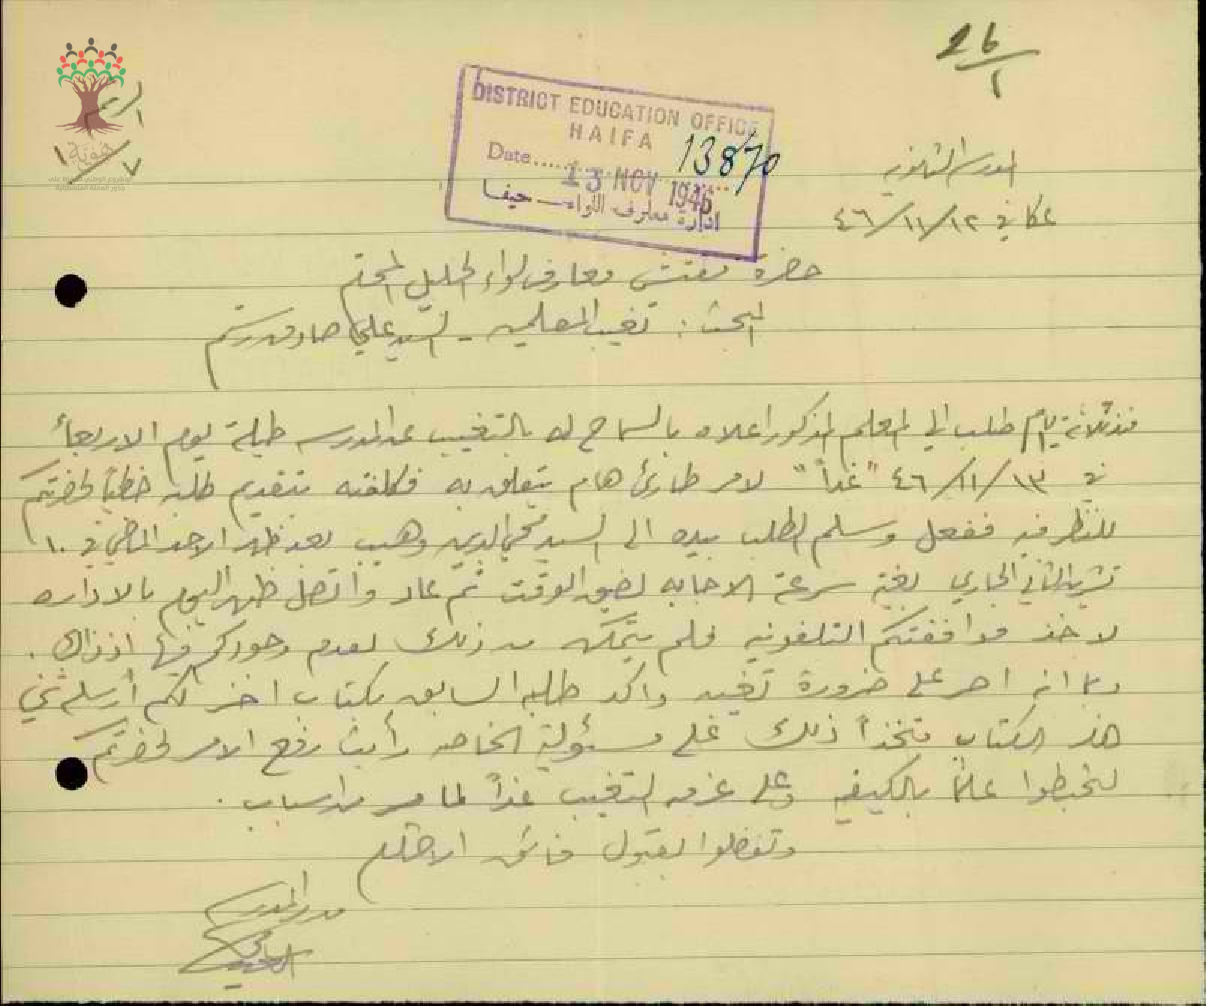 ٢٦/١
الرقم
٧/١
هوية
DISTRICT EDUCATION OFFICE
HAIFA
13870
Date
13 NOV 1946
ادارة معارف اللواء — حيفا
المدرسة الثانوية
عكا في ٤٦/١١/١٢
حضرة مفتش معارف لواء الجليل المحترم
البحث : تغيب المعلمين - السيد علي صادق رستم
منذ ثلاثة ايام طلب الي المعلم المذكور اعلاه بالسماح له بالتغيب عن المدرسه طيلة يوم الاربعاء
في ٤٦/١١/١٣ "غداً" لامر طارئ هام يتعلق به فكلفته بتقديم طلبه خطياً لحضرتكم
للنظر فيه ففعل وسلم الطلب بيده الى السيد محي الدين وهيب بعد ظهر الاحد الماضي في ١٠
تشرين الثاني الجاري بغية سرعة الاجابه لضيق الوقت ثم عاد واتصل ظهر اليوم بالاداره
لاخذ موافقتكم التلفونيه فلم يتمكن من ذلك لعدم وجودكم فيها اذذاك .
وبما انه اصر على ضرورة تغيبه واكد طلبه السابق بكتاب اخر لكم أرسله
هذا الكتاب متخذاً ذلك على مسئوليته الخاصه رأيت رفع الامر لحضرتكم
لتحيطوا علماً بالكيفيه وعلى عزمه التغيب غداً لما مر من اسباب .
وتفضلوا بقبول فائق الاحترام
مدير المدرسة